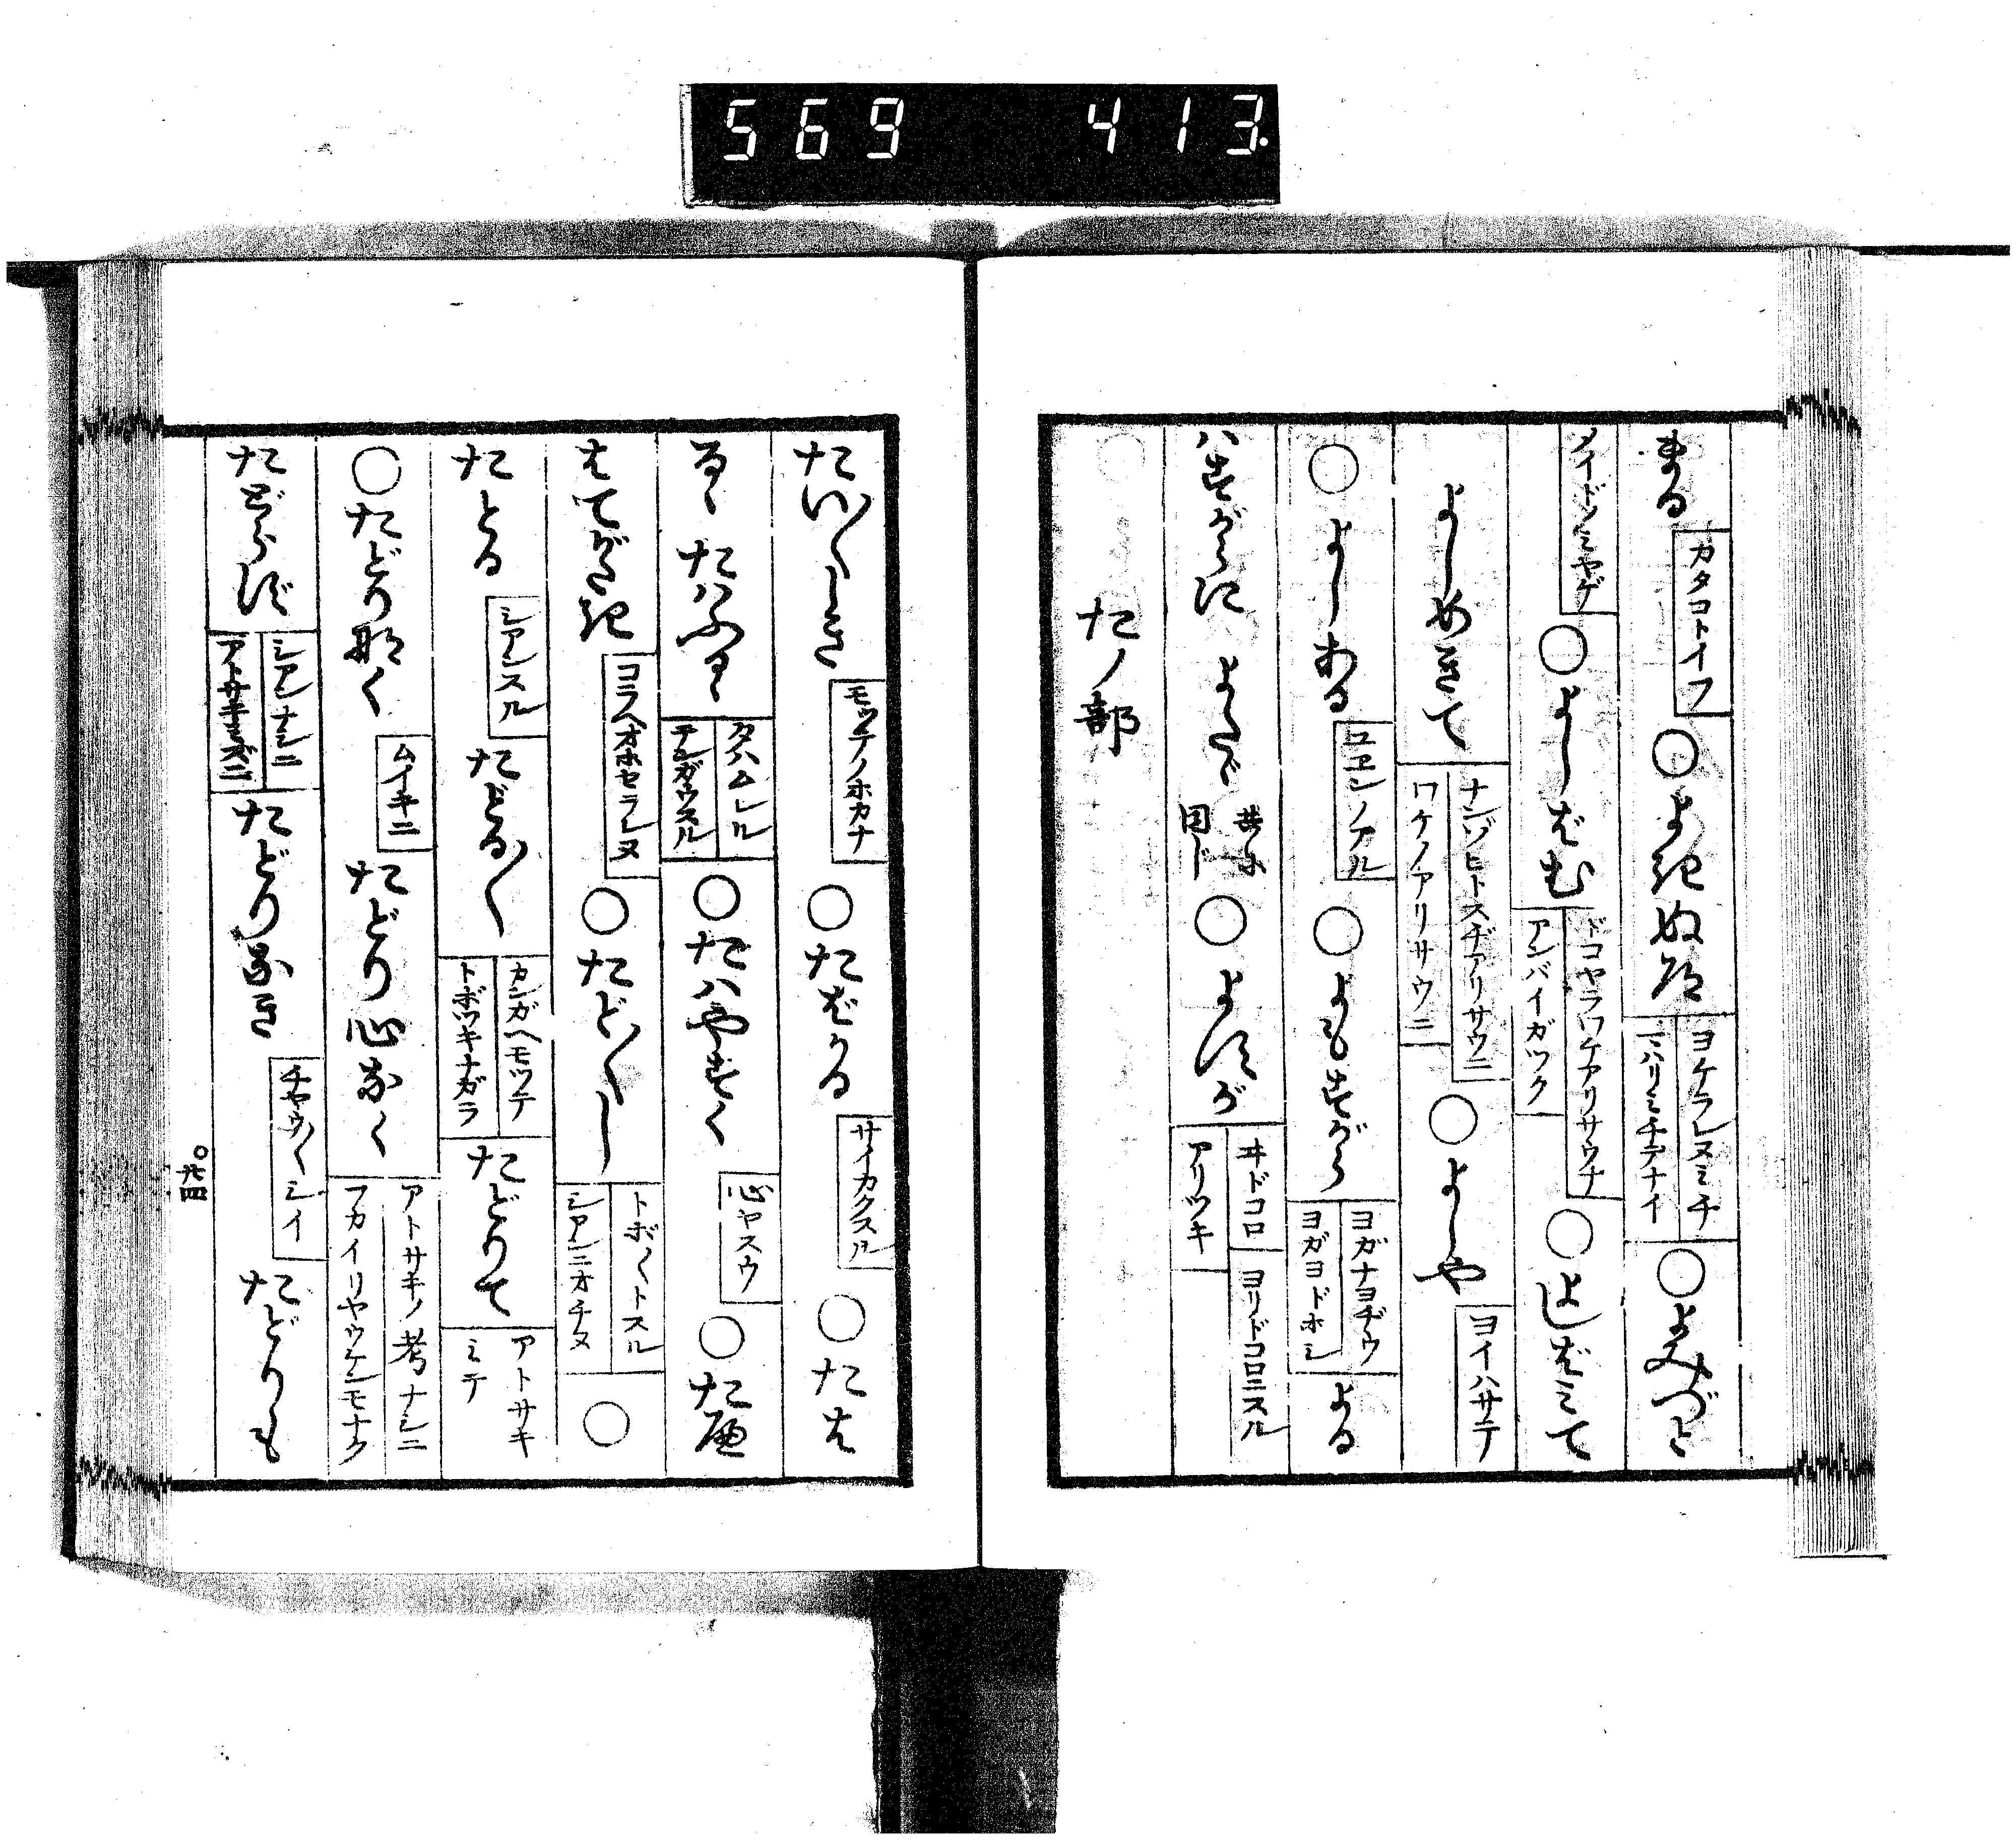 569 413
まる カタコトイフ ○よきぬ道 ヨケラレヌミチ マハリミチデナイ ○よみづと
メイドノミヤゲ ○よしばむ ドコヤラワケアリサウナ アンバイガツク ○よしばミて
よしめきて ナンゾヒトスヂアリサウニ ワケノアリサウニ ○よしや ヨイハサテ
○よしある ユヱンノアル ○よもすがら ヨガナヨヂウ ヨガヨドホシ よる
ハすがらに よたゞ 共ニ同じ ○よすが ヰドコロ ヨリドコロニスル アリツキ
たノ部
たい〳〵しき モッテノホカナ ○たばかる サイカクスル ○たは
るゝ たハふるゝ タハムレル テンガウスル ○たハやすく 心ヤスウ ○たへ
はてがたき コラヘオホセラレヌ ○たど〳〵し トボ〳〵トスル シアンニオチヌ ○
たとる シアンスル たどる〳〵 カンガヘモッテ トボツキナガラ たどりて アトサキミテ
○たどり那く ムイキニ たどり心なく アトサキノ考ナシニ フカイリヤウケンモナク
たどらず シアンナシニ アトサキミズニ たどりなき チヤウ〳〵シイ たどりも
○廿四